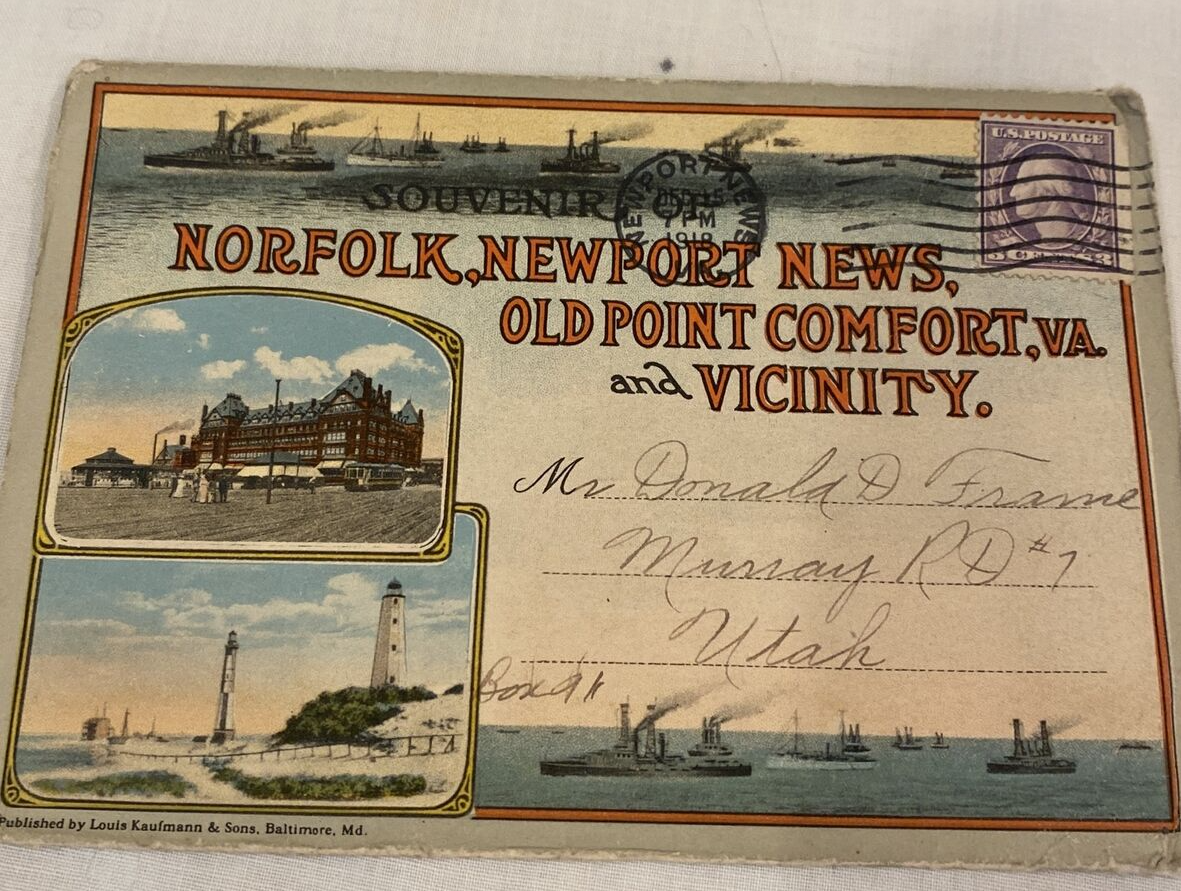 U.S. POSTAGE
SOUVENIR OF
NEWPORT NEWS
7 PM
NORFOLK, NEWPORT NEWS,
OLD POINT COMFORT, VA.
and VICINITY.
Mr Donald D Frame
Murray RD #7
Utah
Box
Published by Louis Kaufmann & Sons, Baltimore, Md.